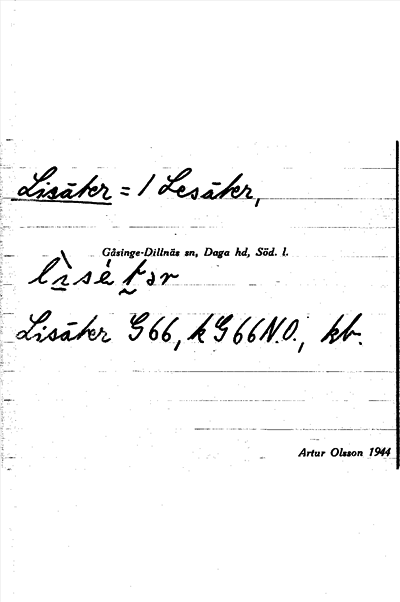 Lisäker = 1 Lesäker,
Gåsinge-Dillnäs sn, Daga hd, Söd. l.
Lisäker G66, k G66 N.O., kb.
Artur Olsson 1944